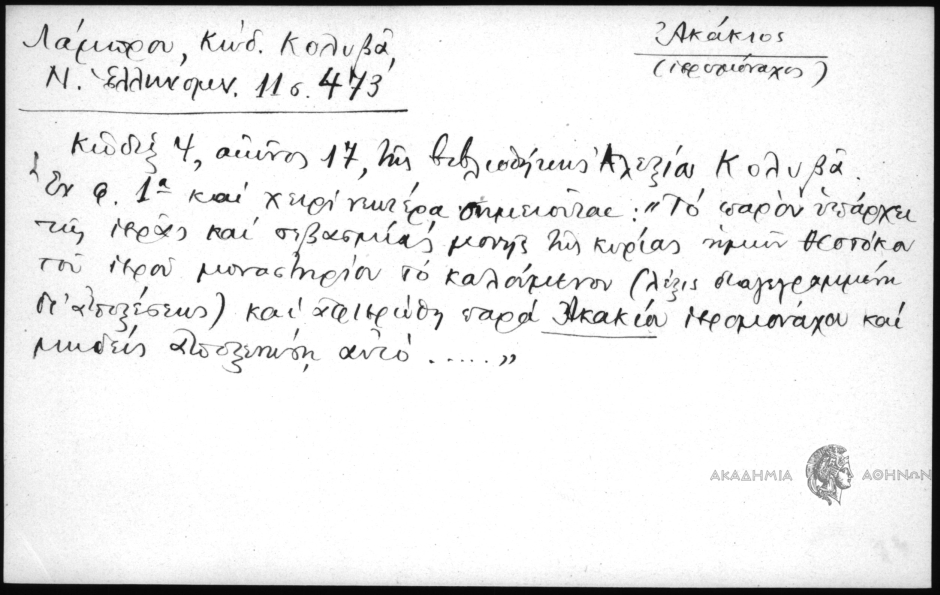 Λάμπρου, Κώδ. Κολυβᾶ,
Ν. Ἑλληνομν. 11 σ. 473
Ἀκάκιος
(ἱερομόναχος)
Κῶδιξ 4, αἰῶνος 17, τῆς βιβλιοθήκης Ἀλεξίου Κολυβᾶ.
Ἐν φ. 1α καὶ χειρὶ νεωτέρα σημειοῦται: "Τὸ παρὸν ὑπάρχει
τῆς ἱερᾶς καὶ σεβασμίας μονῆς τῆς κυρίας ἡμῶν Θεοτόκου
τοῦ ἱεροῦ μοναστηρίου τὸ καλούμενον (λέξις διαγεγραμμένη
δι' ἀποξέσεως) καὶ ἀφιερώθη παρὰ Ἀκακίου ἱερομονάχου καὶ
μηδεὶς ἀποξενώσῃ αὐτό ....."
ΑΚΑΔΗΜΙΑ ΑΘΗΝΩΝ